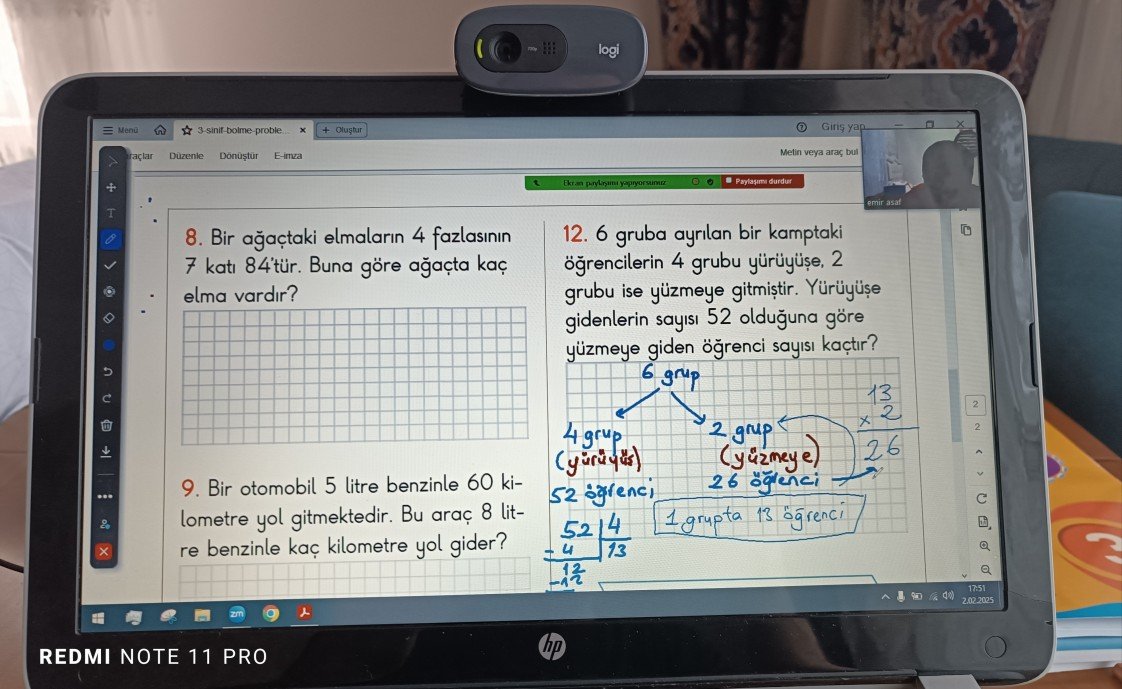 logi
Menü
3-sinif-bolme-proble...
Oluştur
Giriş yap
raçlar
Düzenle
Dönüştür
E-imza
Metin veya araç bul
Ekran paylaşımı yapıyorsunuz
Paylaşımı durdur
emir asaf
8. Bir ağaçtaki elmaların 4 fazlasının
7 katı 84'tür. Buna göre ağaçta kaç
elma vardır?
9. Bir otomobil 5 litre benzinle 60 ki-
lometre yol gitmektedir. Bu araç 8 lit-
re benzinle kaç kilometre yol gider?
12. 6 gruba ayrılan bir kamptaki
öğrencilerin 4 grubu yürüyüşe, 2
grubu ise yüzmeye gitmiştir. Yürüyüşe
gidenlerin sayısı 52 olduğuna göre
yüzmeye giden öğrenci sayısı kaçtır?
6 grup
4 grup
(yürüyüş)
52 öğrenci
2 grup
(yüzmeye)
26 öğrenci
13
x 2
26
1 grupta 13 öğrenci
52 4
- 4 13
12
-12
2
2
zm
17:51
2.02.2025
hp
REDMI NOTE 11 PRO